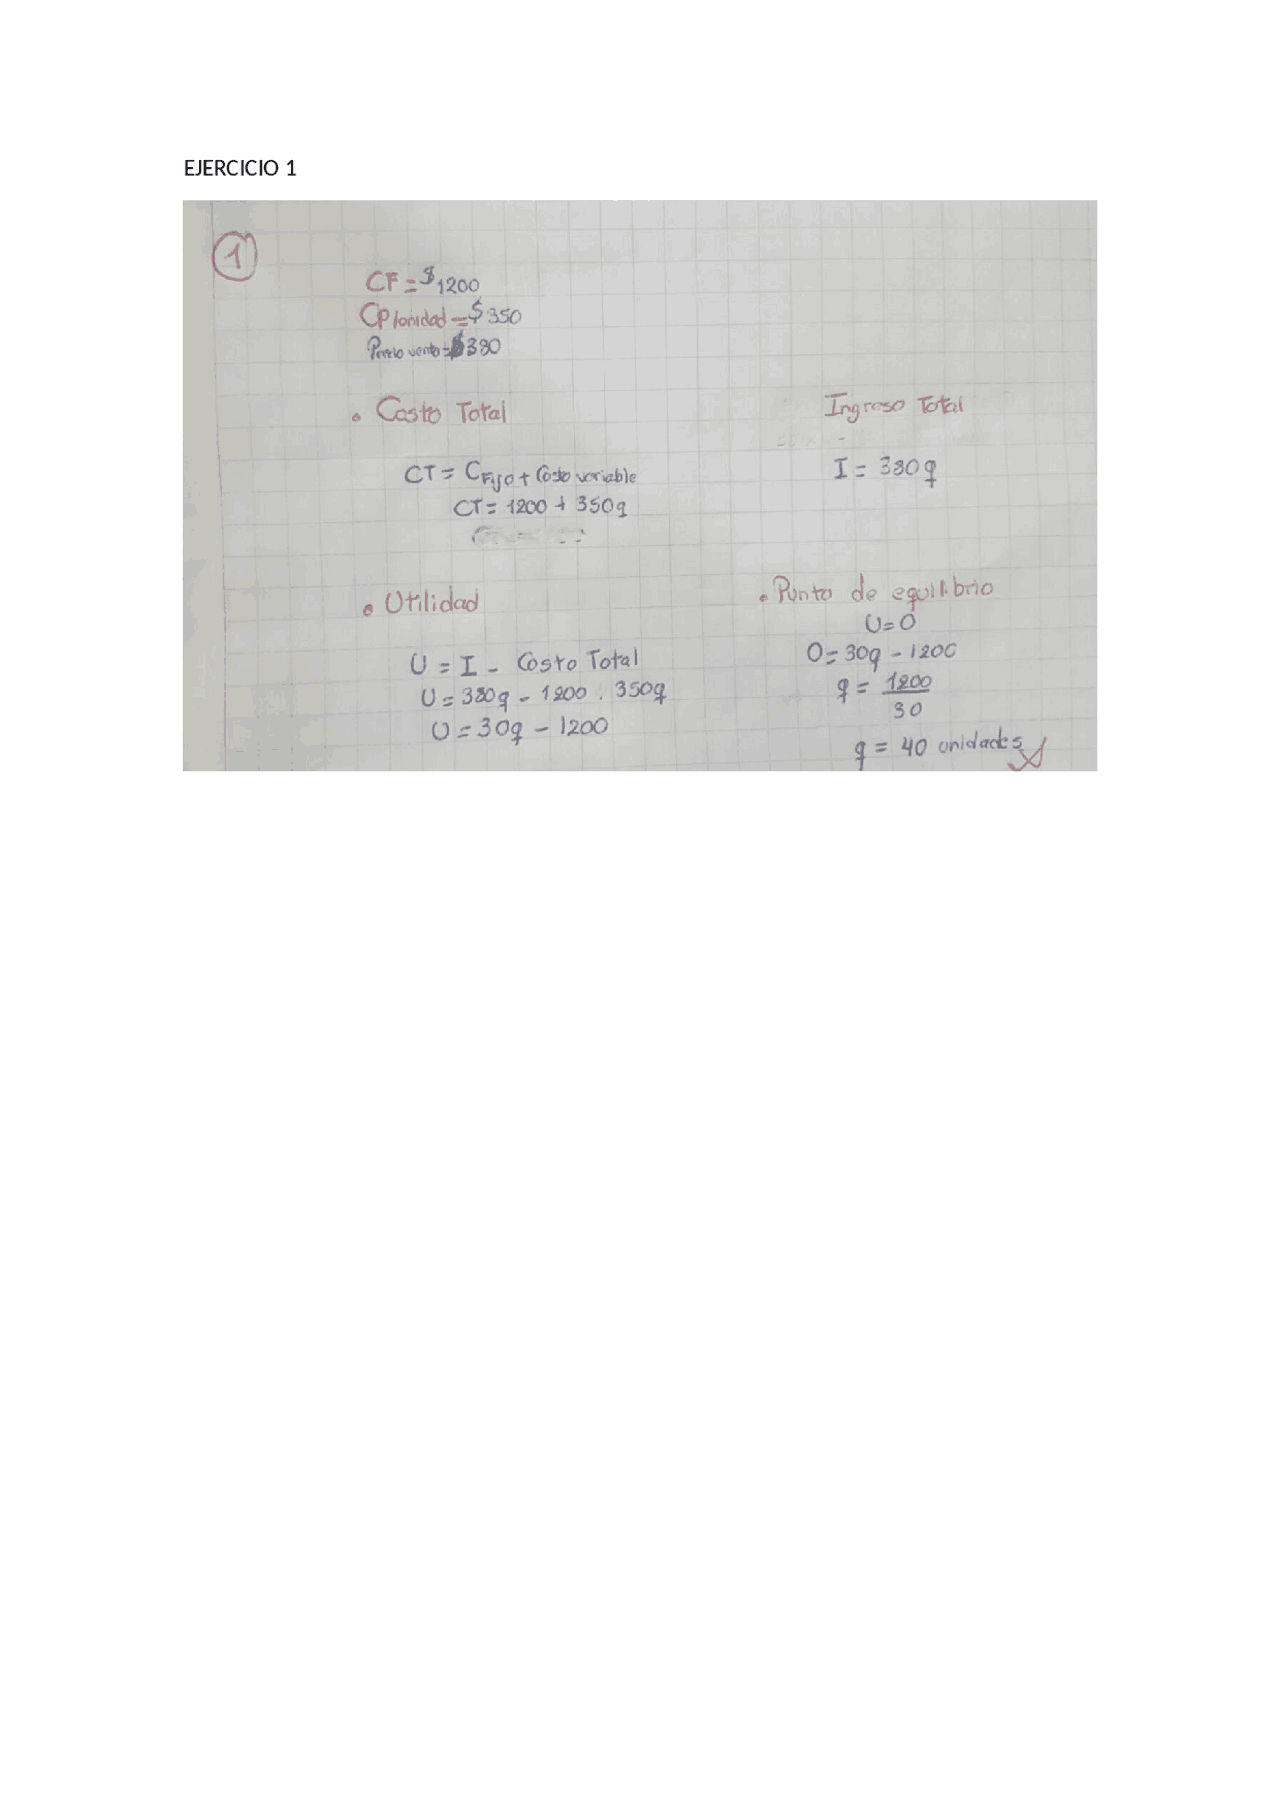 EJERCICIO 1
1
CF = $1200
CP/unidad = $350
Precio venta = $380
• Costo Total
CT = CFijo + Costo variable
CT = 1200 + 350q
Ingreso Total
I = 380q
• Utilidad
U = I - Costo Total
U = 380q - 1200 - 350q
U = 30q - 1200
• Punto de equilibrio
U = 0
0 = 30q - 1200
q = 1200
30
q = 40 unidades